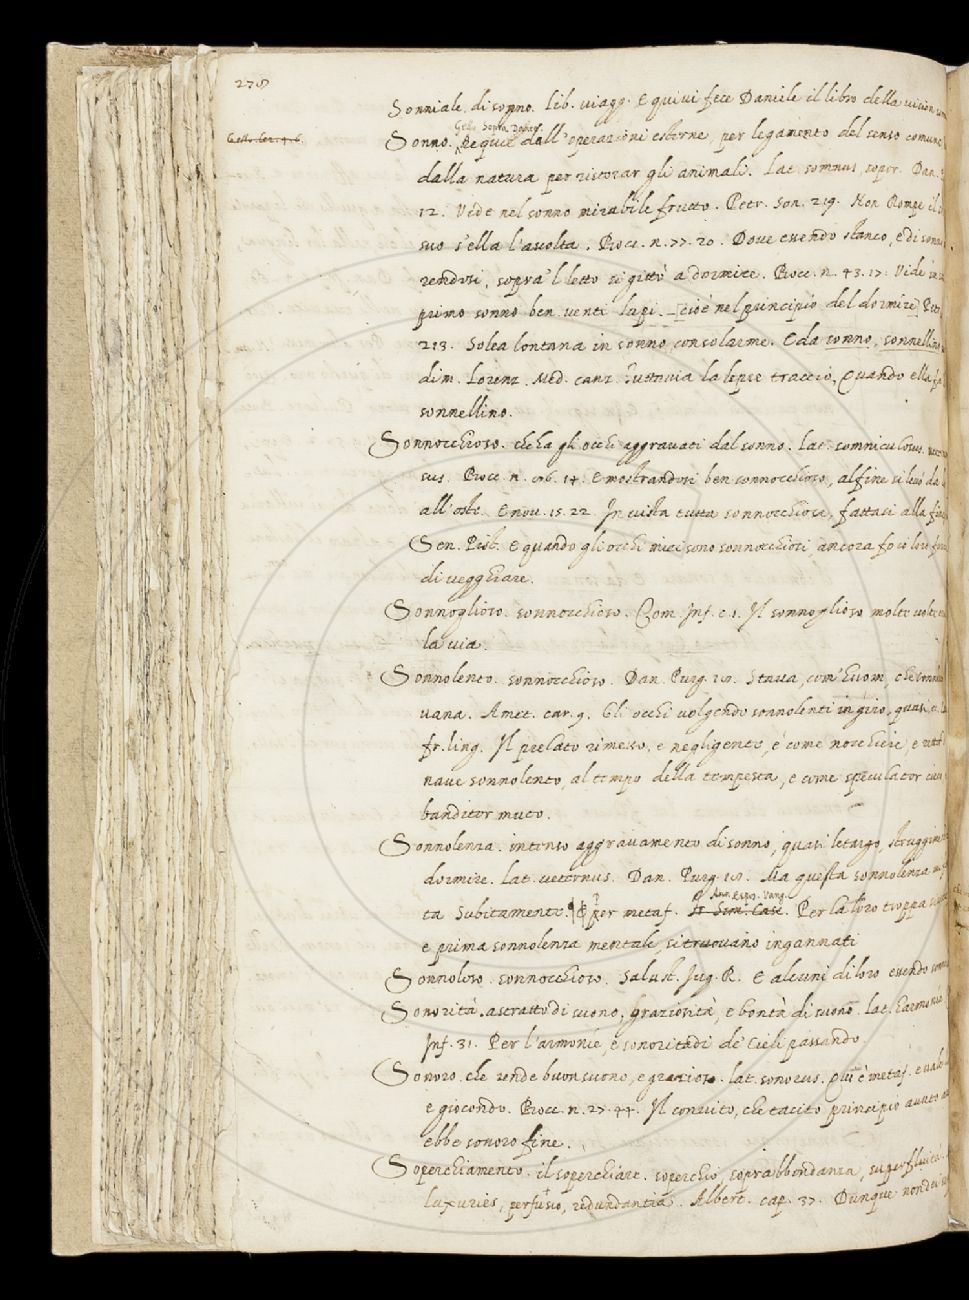 Sonniale. di sonno. Lib. viagg. E quivi fece Daniele il libro della vision
Gell. Sopra Donep.
Sonno. Requie dall'operazioni esterne, per legamento del senso comune
dalla natura per ristorar gli animali. Lat. somnus, sopor. Dan.
12. Vide nel sonno mirabile frutto. Petr. Son. 219. Non Rompe il
suo s'ella l'ascolta. Bocc. n. 77. 20. Dove essendo stanco, e di sonno
vendosi, sopra 'l letto si gittò a dormire. Bocc. n. 43. 17. Vide in sul
primo sonno ben venti lupi. [cioè nel principio del dormire] Petr.
213. Solea lontana in sonno consolarme. E da sonno, sonnellino
dim. Lorenz. Med. canz. Tuttavia la lepre traccio, Quando ella fa
sonnellino.
Sonnocchioso. ch'ha gli occhi aggravati dal sonno. Lat. somniculosus.
sus. Bocc. n. 14. E mostrandosi ben sonnocchioso, al fine si levò da
all'oste. E nov. 15. 22. In vista tutta sonnocchiosa, fattasi alla
Sen. Pist. E quando gli occhi miei sono sonnocchiosi, ancora fo io loro
di vegghiare.
Sonnoglioso. sonnocchioso. Com. Inf. c. 1. Il sonnoglioso molte volte
la via.
Sonnolento. sonnocchioso. Dan. Purg. 18. Stava, com' huom, che sonnolento
vana. Amet. car. 9. Gli occhi volgendo sonnolenti in giro, quasi
fr. ling. Il prelato rimesso, e negligente, è come nocchiere,
nave sonnolento, al tempo della tempesta, e come speculator cieco
banditor muto.
Sonnolenza. intenso aggravamento di sonno, quasi letargo, struggimento
dormire. Lat. veternus. Dan. Purg. 18. Ma questa sonnolenza
Ann. Espos. Vang.
ta Subitamente. ¶ E per metaf. Per la loro troppa
e prima sonnolenza mentale, si truovano ingannati
Sonnoloso. sonnocchioso. Salust. Jug. R. E alcuni di loro essendo
Sonorità. astratto di suono, graziosità, e bontà di suono. Lat. harmonia.
Inf. 31. Per l'armonie, e sonoritadi de' Cieli passando.
Sonoro. che rende buon suono, e grazioso. Lat. sonorus. Qui è metaf. e vale
e giocondo. Bocc. n. 27. 44. Il convito, che tacito principio avuto
ebbe sonoro fine.
Soperchiamento. il soperchiare. soperchio, soprabbondanza, superfluità.
luxuries, perfusio, redundantia. Albert. cap. 37. Dunque non dei